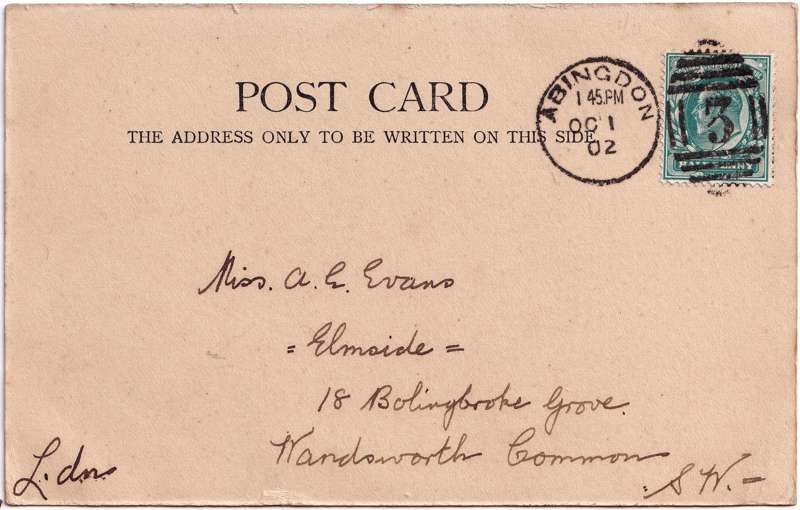 POST CARD
THE ADDRESS ONLY TO BE WRITTEN ON THIS SIDE.
ABINGDON
1 45.PM
OC 1
02
3
HALFPENNY
Miss. A. E. Evans
= Elmside =
18 Bolingbroke Grove.
Wandsworth Common
S.W. -
L.dn